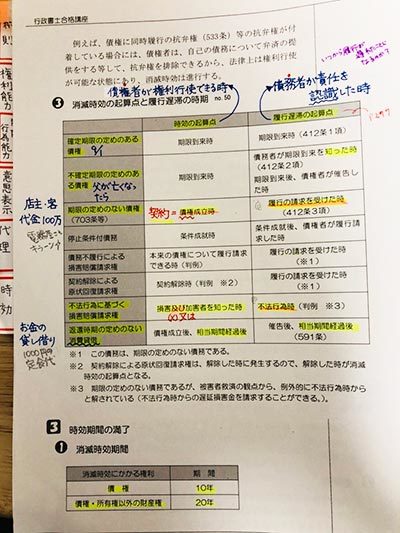 行政書士合格講座
例えば、債権に同時履行の抗弁権(533条)等の抗弁権が付
着している場合には、債権者は、自己の債務について弁済の提
供をする等して、抗弁権を排除できるから、法律上は権利行使
が可能な状態にあり、消滅時効は進行する。
いつから履行が
債権者が権利行使できる時
債務者が責任を
認識した時
❸ 消滅時効の起算点と履行遅滞の時期 no.50
時効の起算点
履行遅滞の起算点
確定期限の定めのある
債権 9/1
期限到来時
期限到来時(412条1項)
不確定期限の定めのあ
る債権 父が亡くなっ
たら
期限到来時
債務者が期限到来を知った時
(412条2項)
期限到来後、債権者が催告した
時
店主:客
代金100万
期限の定めのない債権
(703条等)
契約=債権成立時
履行の請求を受けた時
(412条3項)
停止条件付債務
条件成就時
条件成就後、債権者が履行
請求した時
債務不履行による
損害賠償請求権
本来の債権について履行請求
できる時(判例)
履行の請求を受けた時
(※1)
契約解除による
原状回復請求権
契約解除時(判例 ※2)
履行の請求を受けた時
(※1)
不法行為に基づく
損害賠償請求権
損害及び加害者を知った時
又は
不法行為時(判例 ※3)
お金の
貸し借り
1000円
返還時期の定めのない
消費貸借
債権成立後、相当期間経過後
催告後、相当期間経過後
(591条)
※1 この債務は、期限の定めのない債務である。
※2 契約解除による原状回復請求権は、解除した時に発生するので、解除した時が消滅
時効の起算点となる。
※3 期限の定めのない債務であるが、被害者救済の観点から、例外的に不法行為時から
と解されている(不法行為時からの遅延損害金を請求することができる。)。
3 時効期間の満了
❶ 消滅時効期間
消滅時効にかかる権利
期 間
債 権
10年
債権・所有権以外の財産権
20年
則
権利能力
行為能力
意思表示
代理
時効